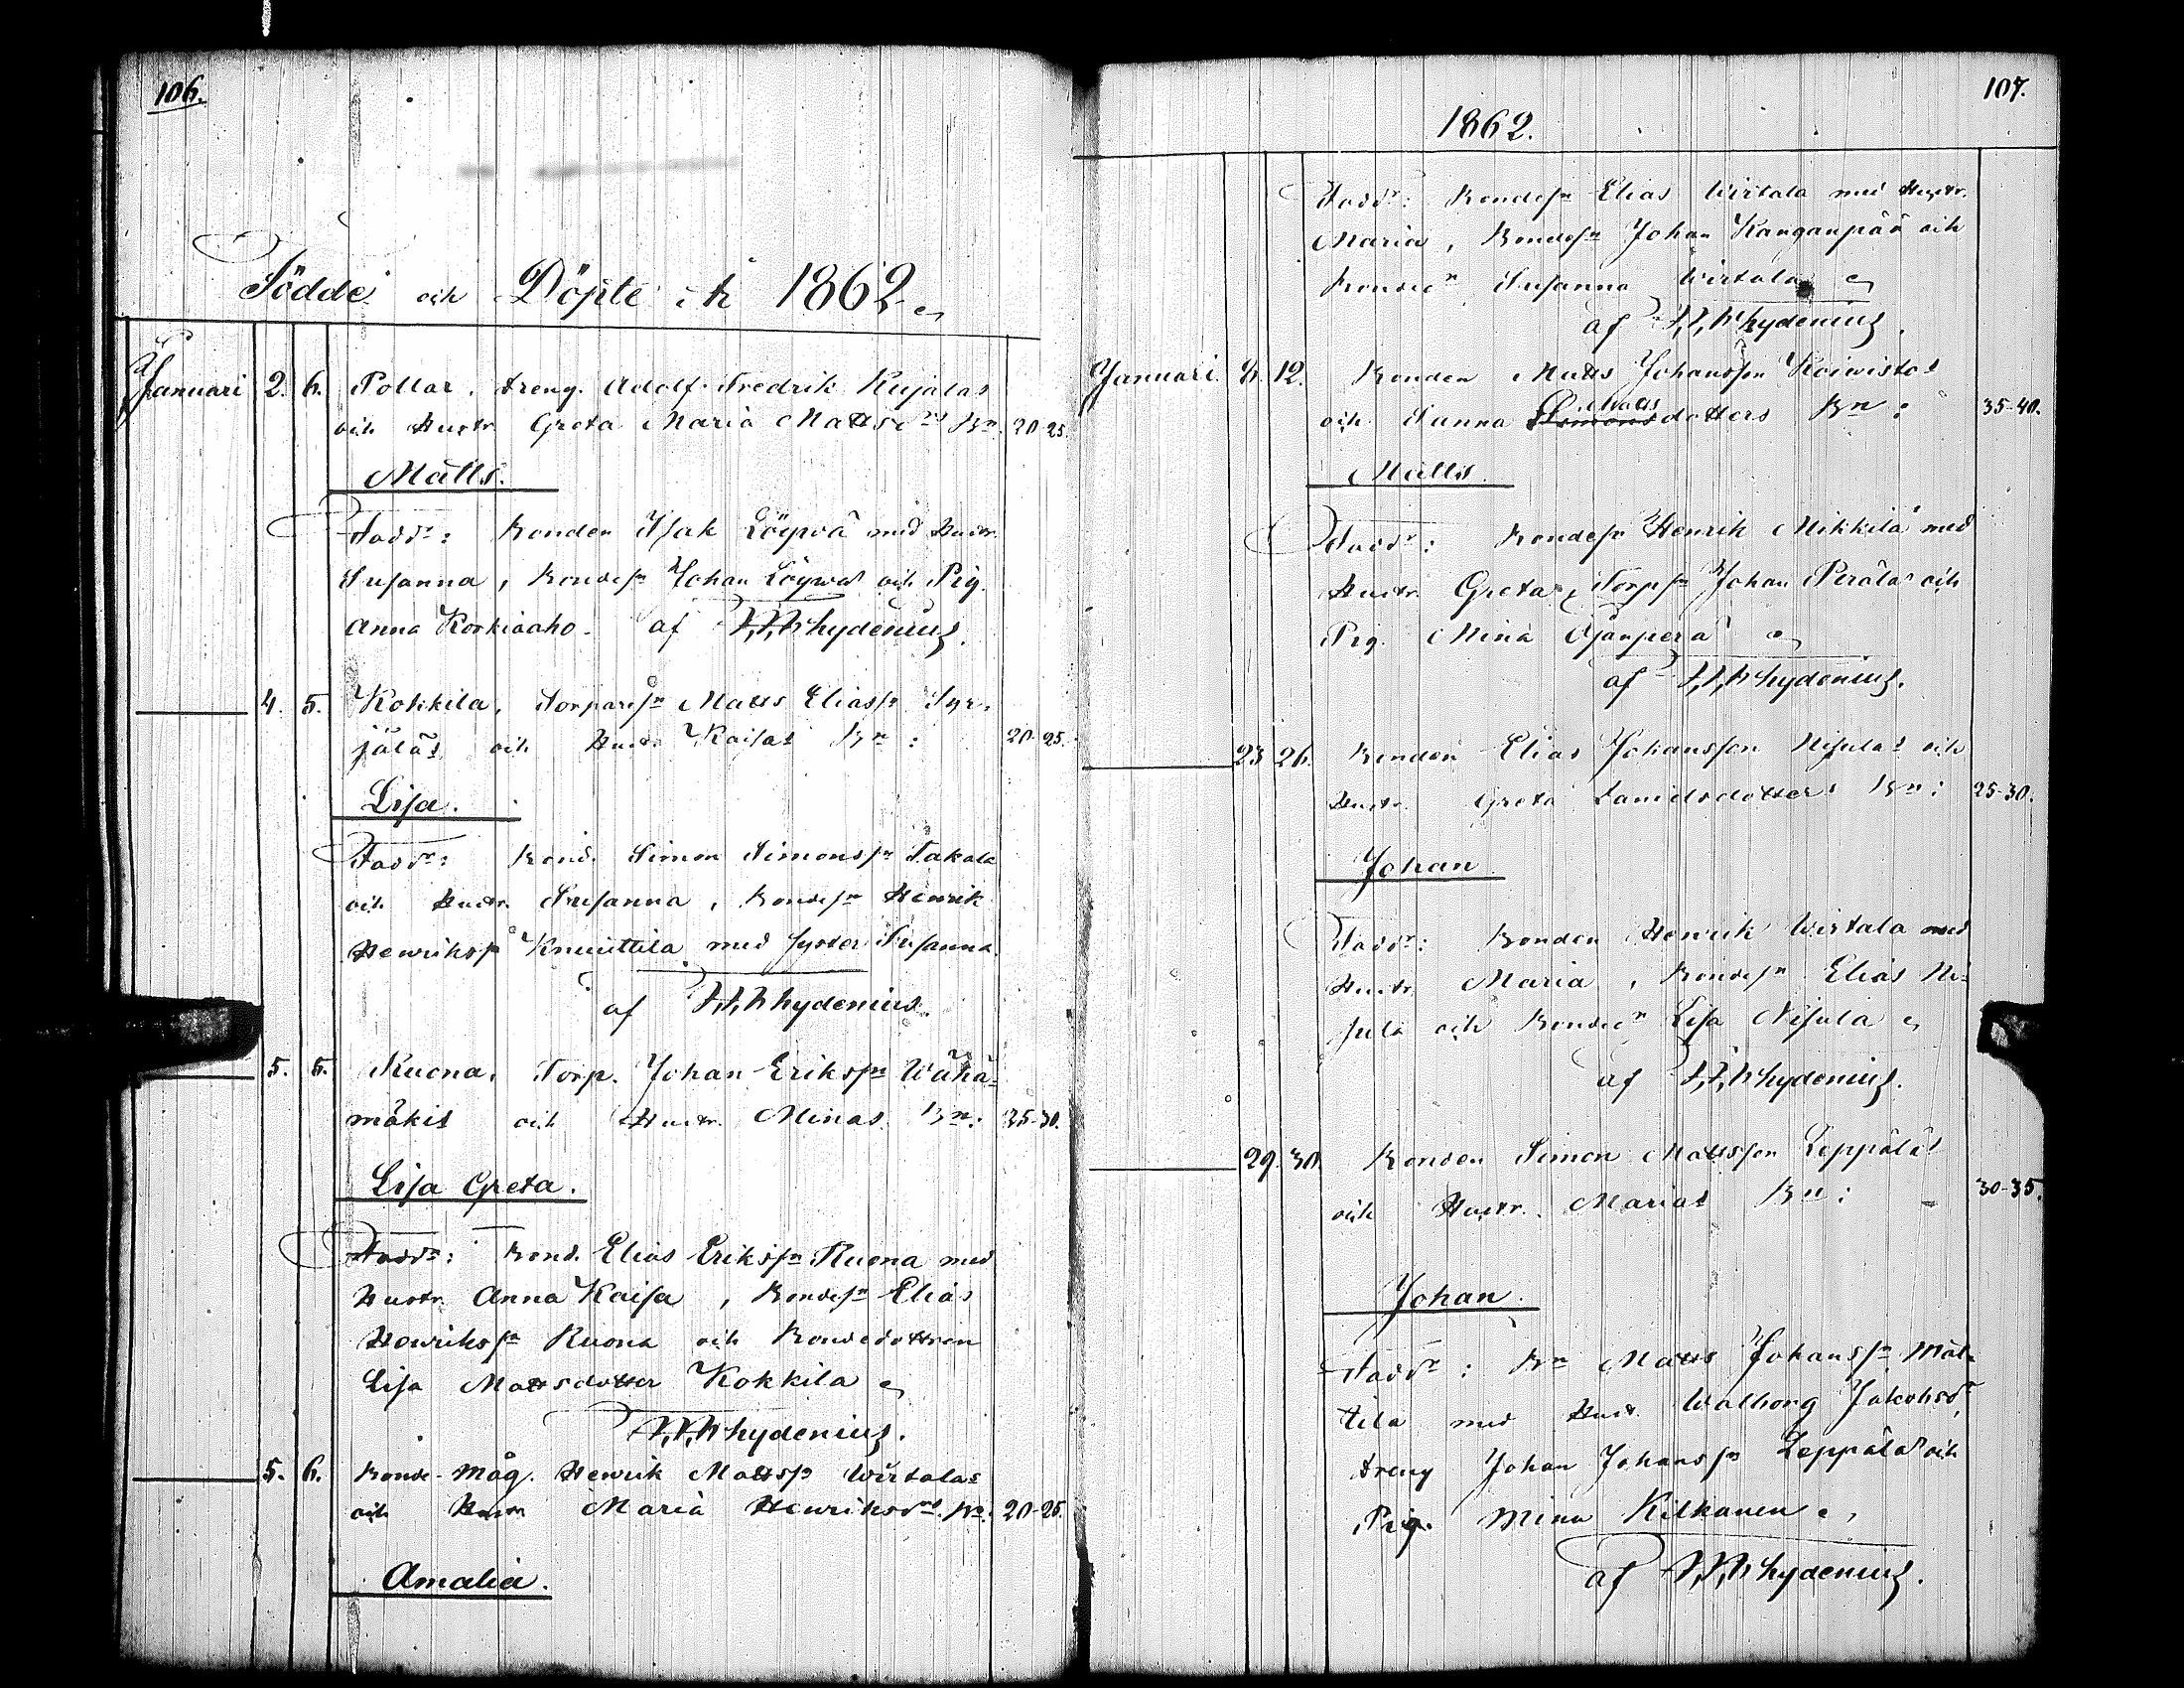 106.
Födde och Döpte År 1862
Januari 2. 6. Pollar, dreng. Adolf Fredrik Kujalas
och Hustr. Greta Maria Mattsdrs Bn. 20-25.
Matts.
Fadd: Bonden Isak Löyvä med Hustr.
Susanna, Bondesn Johan Löyvä och Pig.
Anna Korkiaaho. af Hydenius.
4. 5. Kokkila, Torparesn Matts Eliassn Syr-
jäläs och Hustr. Kaisas Bn: 20-25.
Lisa.
Fadd: Bond. Simon Simonssn Takala
och Hustr. Susanna, Bondesn Henrik
Henrikssn Knuuttila med syster Susanna.
af Hydenius.
5. 6. Ruona, Torp. Johan Erikssn Wähä-
mäkis och Hustr. Minas Bn: 25-30.
Lisa Greta.
Fadd: Bond. Elias Erikssn Ruona med
Hustr. Anna Kaisa, Bondesn Elias
Henrikssn Ruona och Bondedottren
Lisa Mattsdotter Kokkila
Hydenius.
5. 6. Bonde-Måg. Henrik Mattssn Wirtalas
och Hustr Maria Henriksdrs Bn. 20-25.
Amalia.
107.
1862.
Fadd: Bondesn Elias Wirtala med Hustr.
Maria, Bondesn Johan Kanganpää och
Bonded Susanna Wirtala
af Hydenius.
Januari 8. 12. Bonden Matts Johansson Koivistos
och Sanna Simons Mattsdotters Bn: 35-40.
Matts.
Fadd: Bondesn Henrik Mikkilä med
Hustr. Greta, Torpsn Johan Perälä och
Pig. Mina Ojanperä
af Hydenius.
23 26. Bonden Elias Johansson Nisulas och
Hustr. Greta Danielsdotters Bn: 25-30.
Johan
Fadd: Bonden Henrik Wirtala med
Hustr. Maria, Bondesn Elias Ni-
sula och Bonded Lisa Nisula
af Hydenius.
29. 30. Bonden Simon Mattsson Leppäläs
och Hustr. Marias Bn: 30-35.
Johan.
Fadd: Bn Matts Johanssn Mät-
tilä med Hustr. Walborg Jakobsdr,
dreng Johan Johanssn Leppälä och
Pig. Mina Kilkanen
af Hydenius.